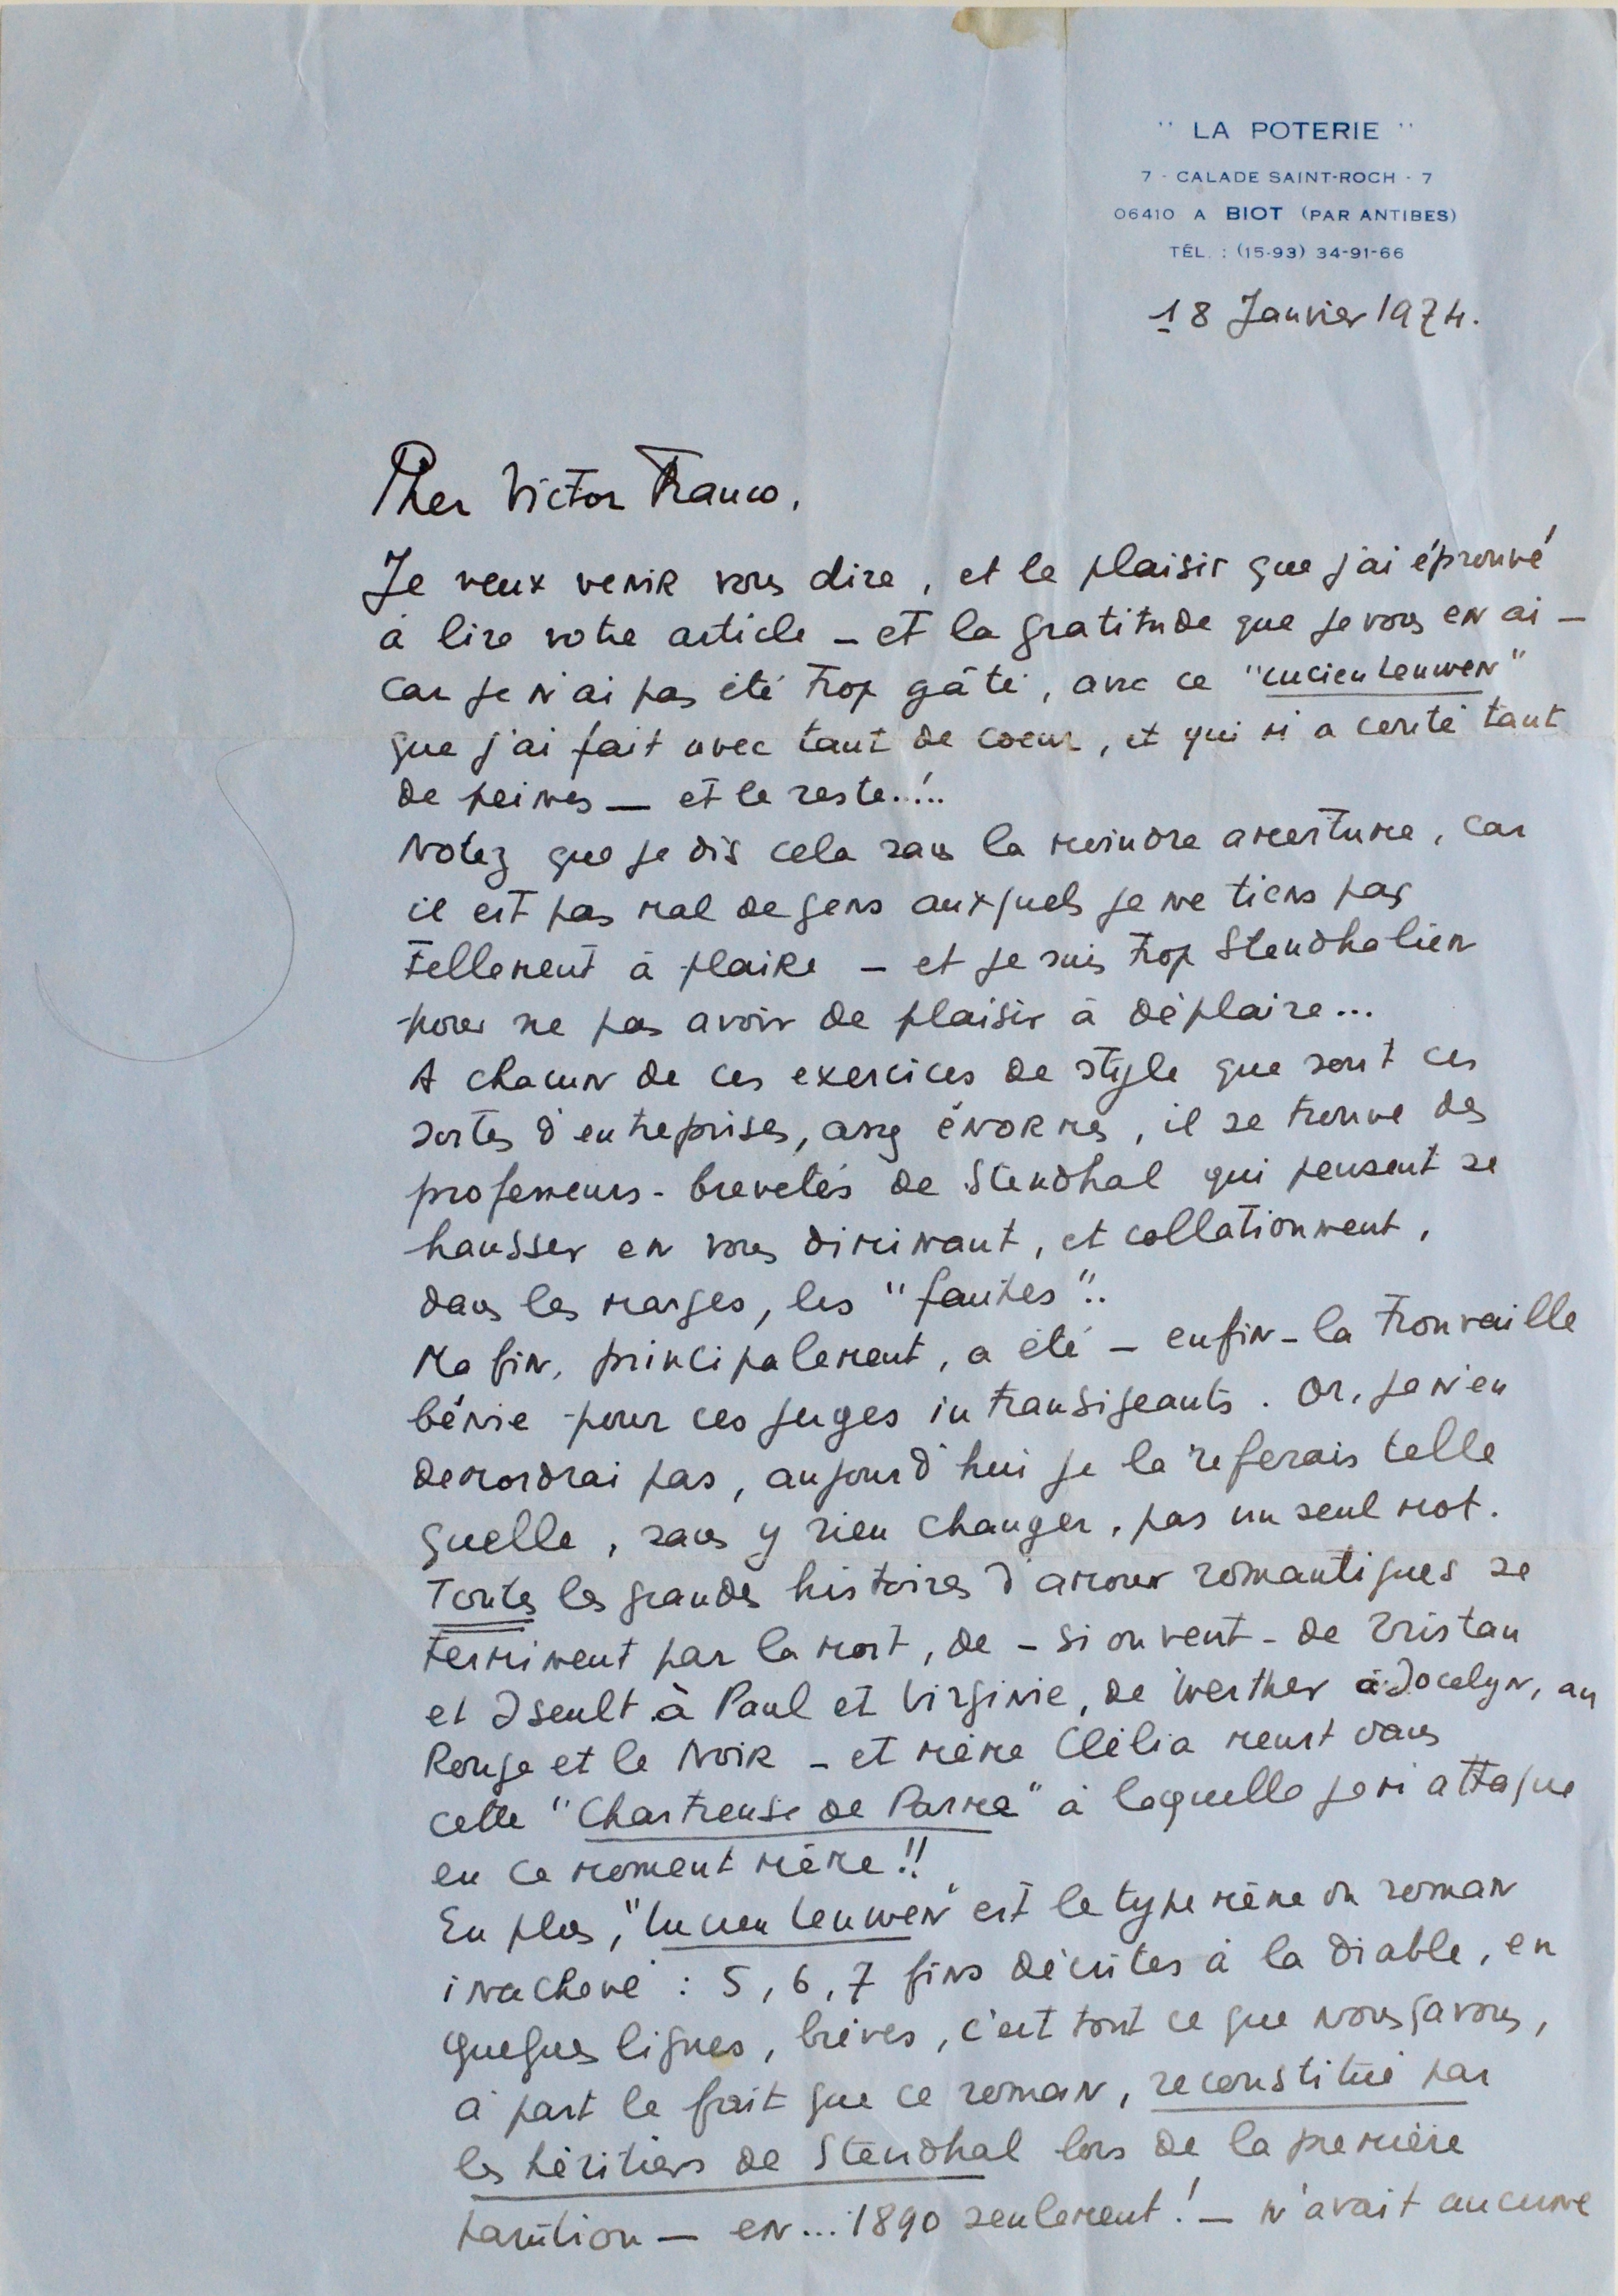 " LA POTERIE "
7 - CALADE SAINT-ROCH - 7
06410 A BIOT (PAR ANTIBES)
TÉL. : (15-93) 34-91-66
18 Janvier 1974.
Cher Victor Franco,
Je veux venir vous dire, et le plaisir que j'ai éprouvé
à lire votre article _ et la gratitude que je vous en ai _
car je n'ai pas été trop gâté, avec ce "Lucien Leuwen"
que j'ai fait avec tant de coeur, et qui m'a coûté tant
de peines _ et le reste..!..
Notez que je dis cela sans la moindre amertume, car
il est pas mal de gens auxquels je ne tiens pas
tellement à plaire _ et je suis trop Stendhalien
pour ne pas avoir de plaisir à déplaire...
A chacun de ces exercices de style que sont ces
sortes d'entreprises, assez énormes, il se trouve des
professeurs-brevetés de Stendhal qui pensent se
hausser en vous diminuant, et collationnent,
dans les marges, les "fautes"..
Ma fin, principalement, a été _ enfin _ la trouvaille
bénie pour ces juges intransigeants. Or, je n'en
demordrai pas, aujourd'hui je la referais telle
quelle, sans y rien changer, pas un seul mot.
Toutes les grandes histoires d'amour romantiques se
terminent par la mort, de _ si on veut _ de Tristan
et Iseult à Paul et Virginie, de Werther à Jocelyn, au
Rouge et le Noir _ et même Clélia meurt dans
cette "Chartreuse de Parme" à laquelle je m'attaque
en ce moment même !!
En plus, "Lucien Leuwen" est le type même du roman
inachevé : 5, 6, 7 fins décrites à la diable, en
quelques lignes, brèves, c'est tout ce que nous savons,
à part le fait que ce roman, reconstitué par
les héritiers de Stendhal lors de la première
parution _ en... 1890 seulement ! _ n'avait aucune